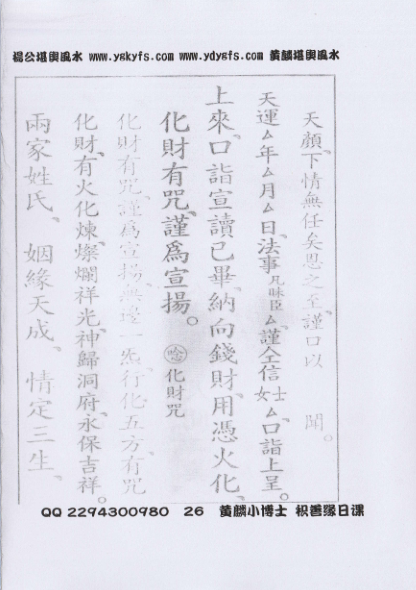 楊公堪輿風水 www.ygkyfs.com www.ydygfs.com 黄麟堪輿風水
天顏、下情無任矣恩之至、謹口以 聞。
天運ム年ム月ム日、法事凡昧臣ム、謹仝信女士ム口詣上呈。
上來、口詣宣讀已畢、納向錢財、用憑火化、
化財有咒、謹爲宣揚。㊂唸 化財咒
化財有咒、謹爲宣揚、無邊一炁、行化五方、有咒
化財、有火化煉、燦爛祥光、神歸洞府、永保吉祥。
兩家姓氏、姻緣天成、情定三生、
QQ 2294300980 26 黄麟小博士 积善缘日课